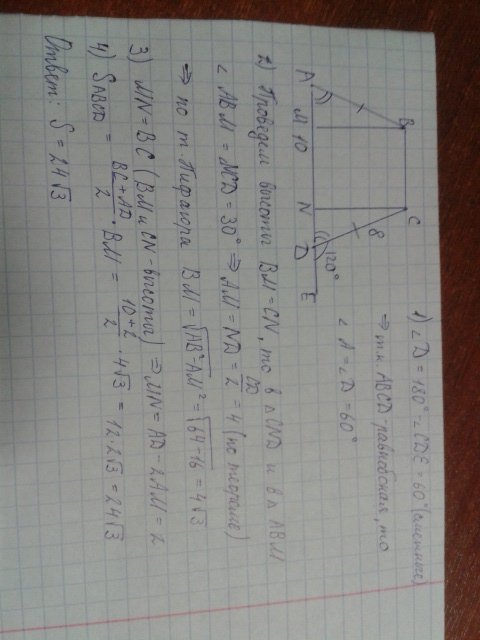 B C
A M 10 N D E
8
120°
1) ∠D = 180° - ∠CDE = 60° (смежные)
⇒ т.к. ABCD равнобокая, то
∠A = ∠D = 60°
2) Проведем высоты BM = CN, то в △CND и в △ABM
∠ABM = ∠NCD = 30° ⇒ AM = ND = CD/2 = 4 (по теореме)
⇒ по т. Пифагора BM = √AB² - AM² = √64 - 16 = 4√3
3) MN = BC (BM и CN - высоты) ⇒ MN = AD - 2AM = 2
4) SABCD = BC + AD/2 · BM = 10 + 2/2 · 4√3 = 12 · 2√3 = 24√3
Ответ: S = 24√3